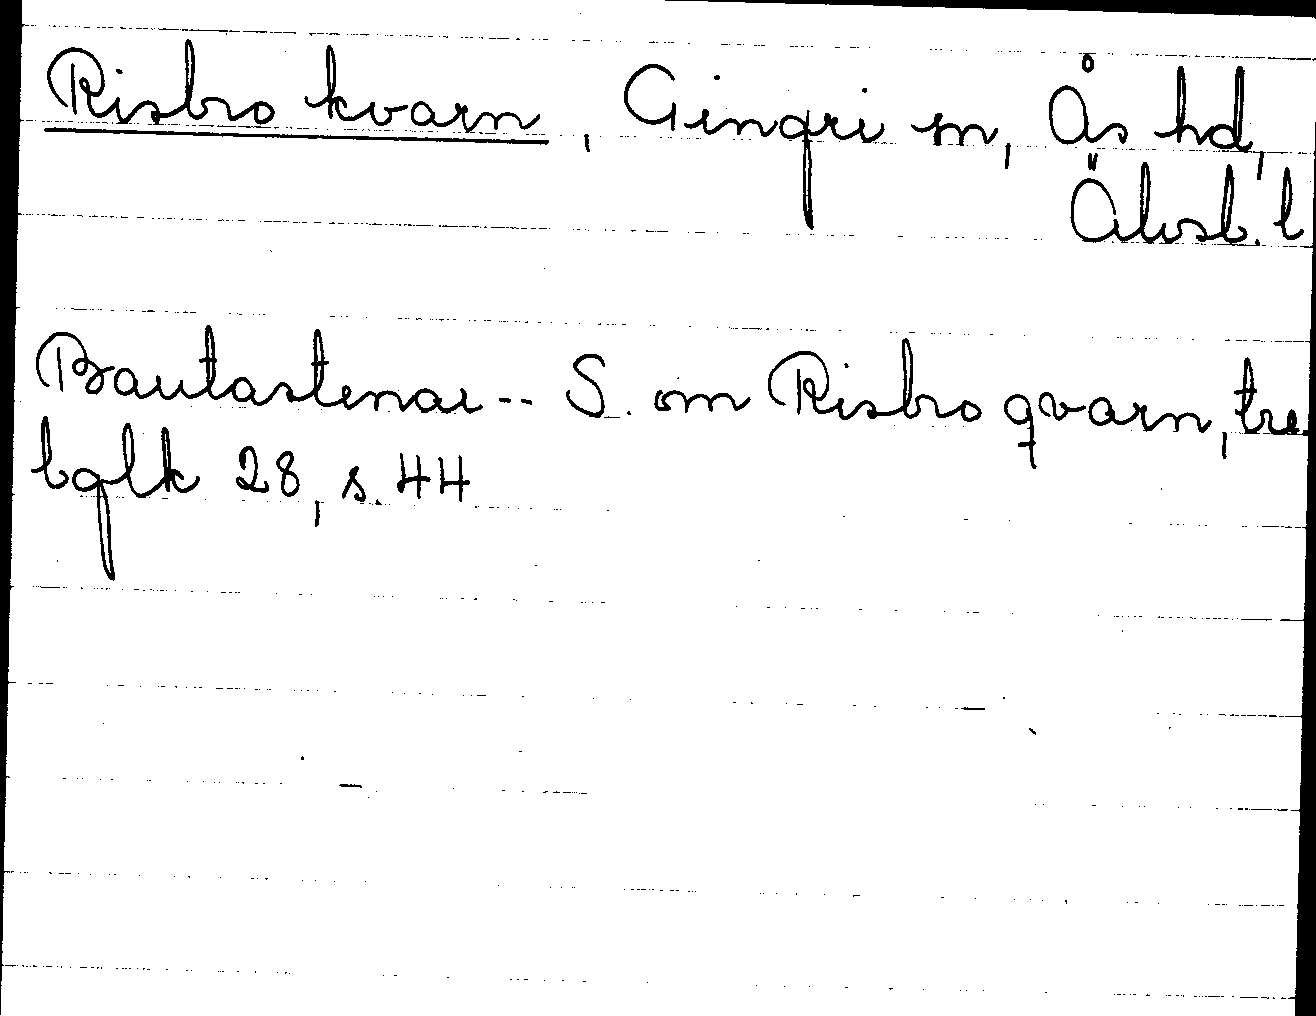 Risbro kvarn, Gingri sn, Ås hd,
Älvsb. l
Bautastenar -- S. om Risbro qvarn, tre.
bglk 28, s. 44